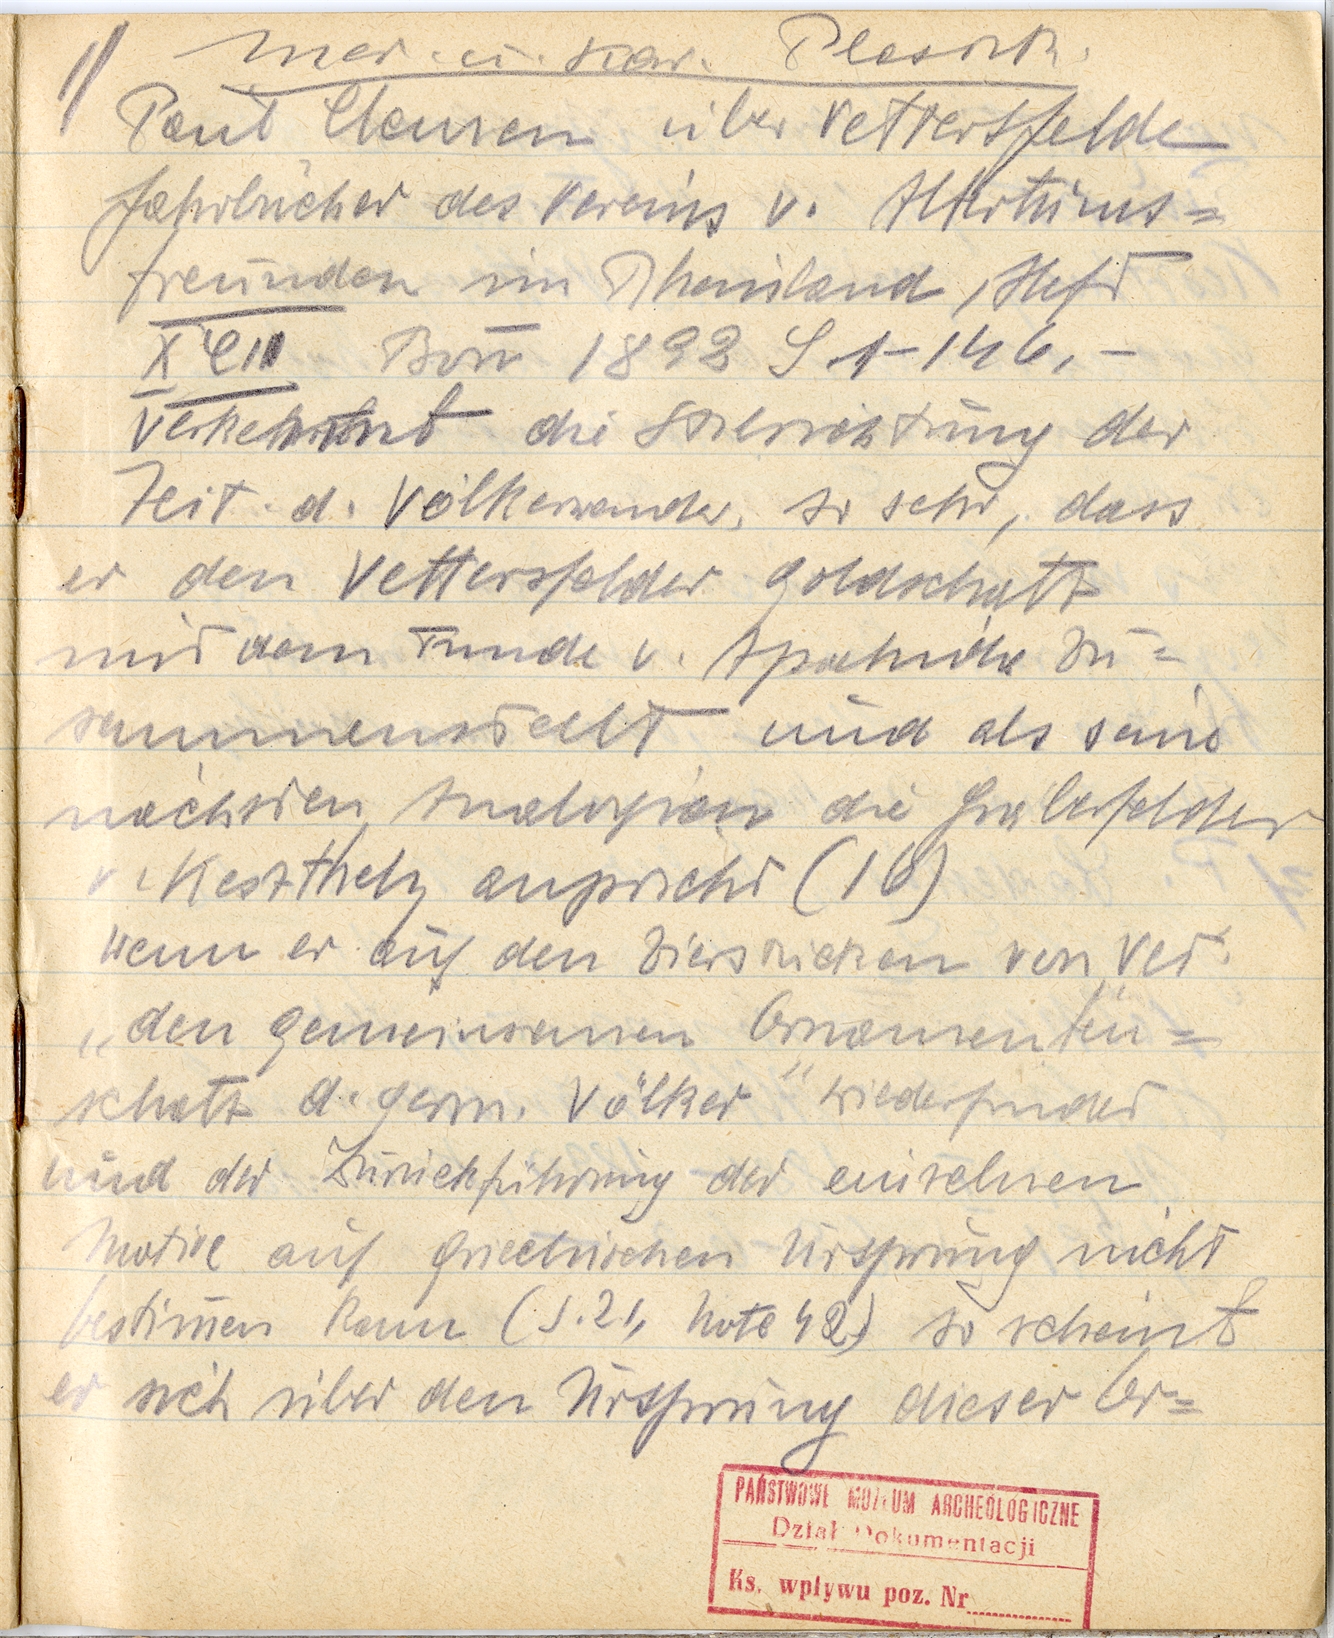 1) Mer. u. Kar. Plastik.
Paul Clemen über Vettersfelde
Jahrbücher des Vereins v. Altertums=
freunden im Rheinland, Heft
XCII Bonn 1892 S 1-146. -
Verkennt die Stilrichtung der
Zeit d. Völkerwander. so sehr, dass
er den Vettersfelder Goldschatz
mit dem Funde v. Apahida zu=
sammenstellt und als seine
nächsten Analogien die Gräberfelder
v. Keszthely anspricht (16)
wenn er auf den Zierstücken von Vet.
„den gemeinsamen Ornamenten=
schatz d. germ. Völker" wiederfindet
und der Zurückführung der einzelnen
Motive auf griechischen Ursprung nicht
bestimen kann (S. 21, Note 42) so scheint
er sich über den Ursprung dieser Or=
PAŃSTWOWE MUZEUM ARCHEOLOGICZNE
Dział Dokumentacji
Ks. wpływu poz. Nr